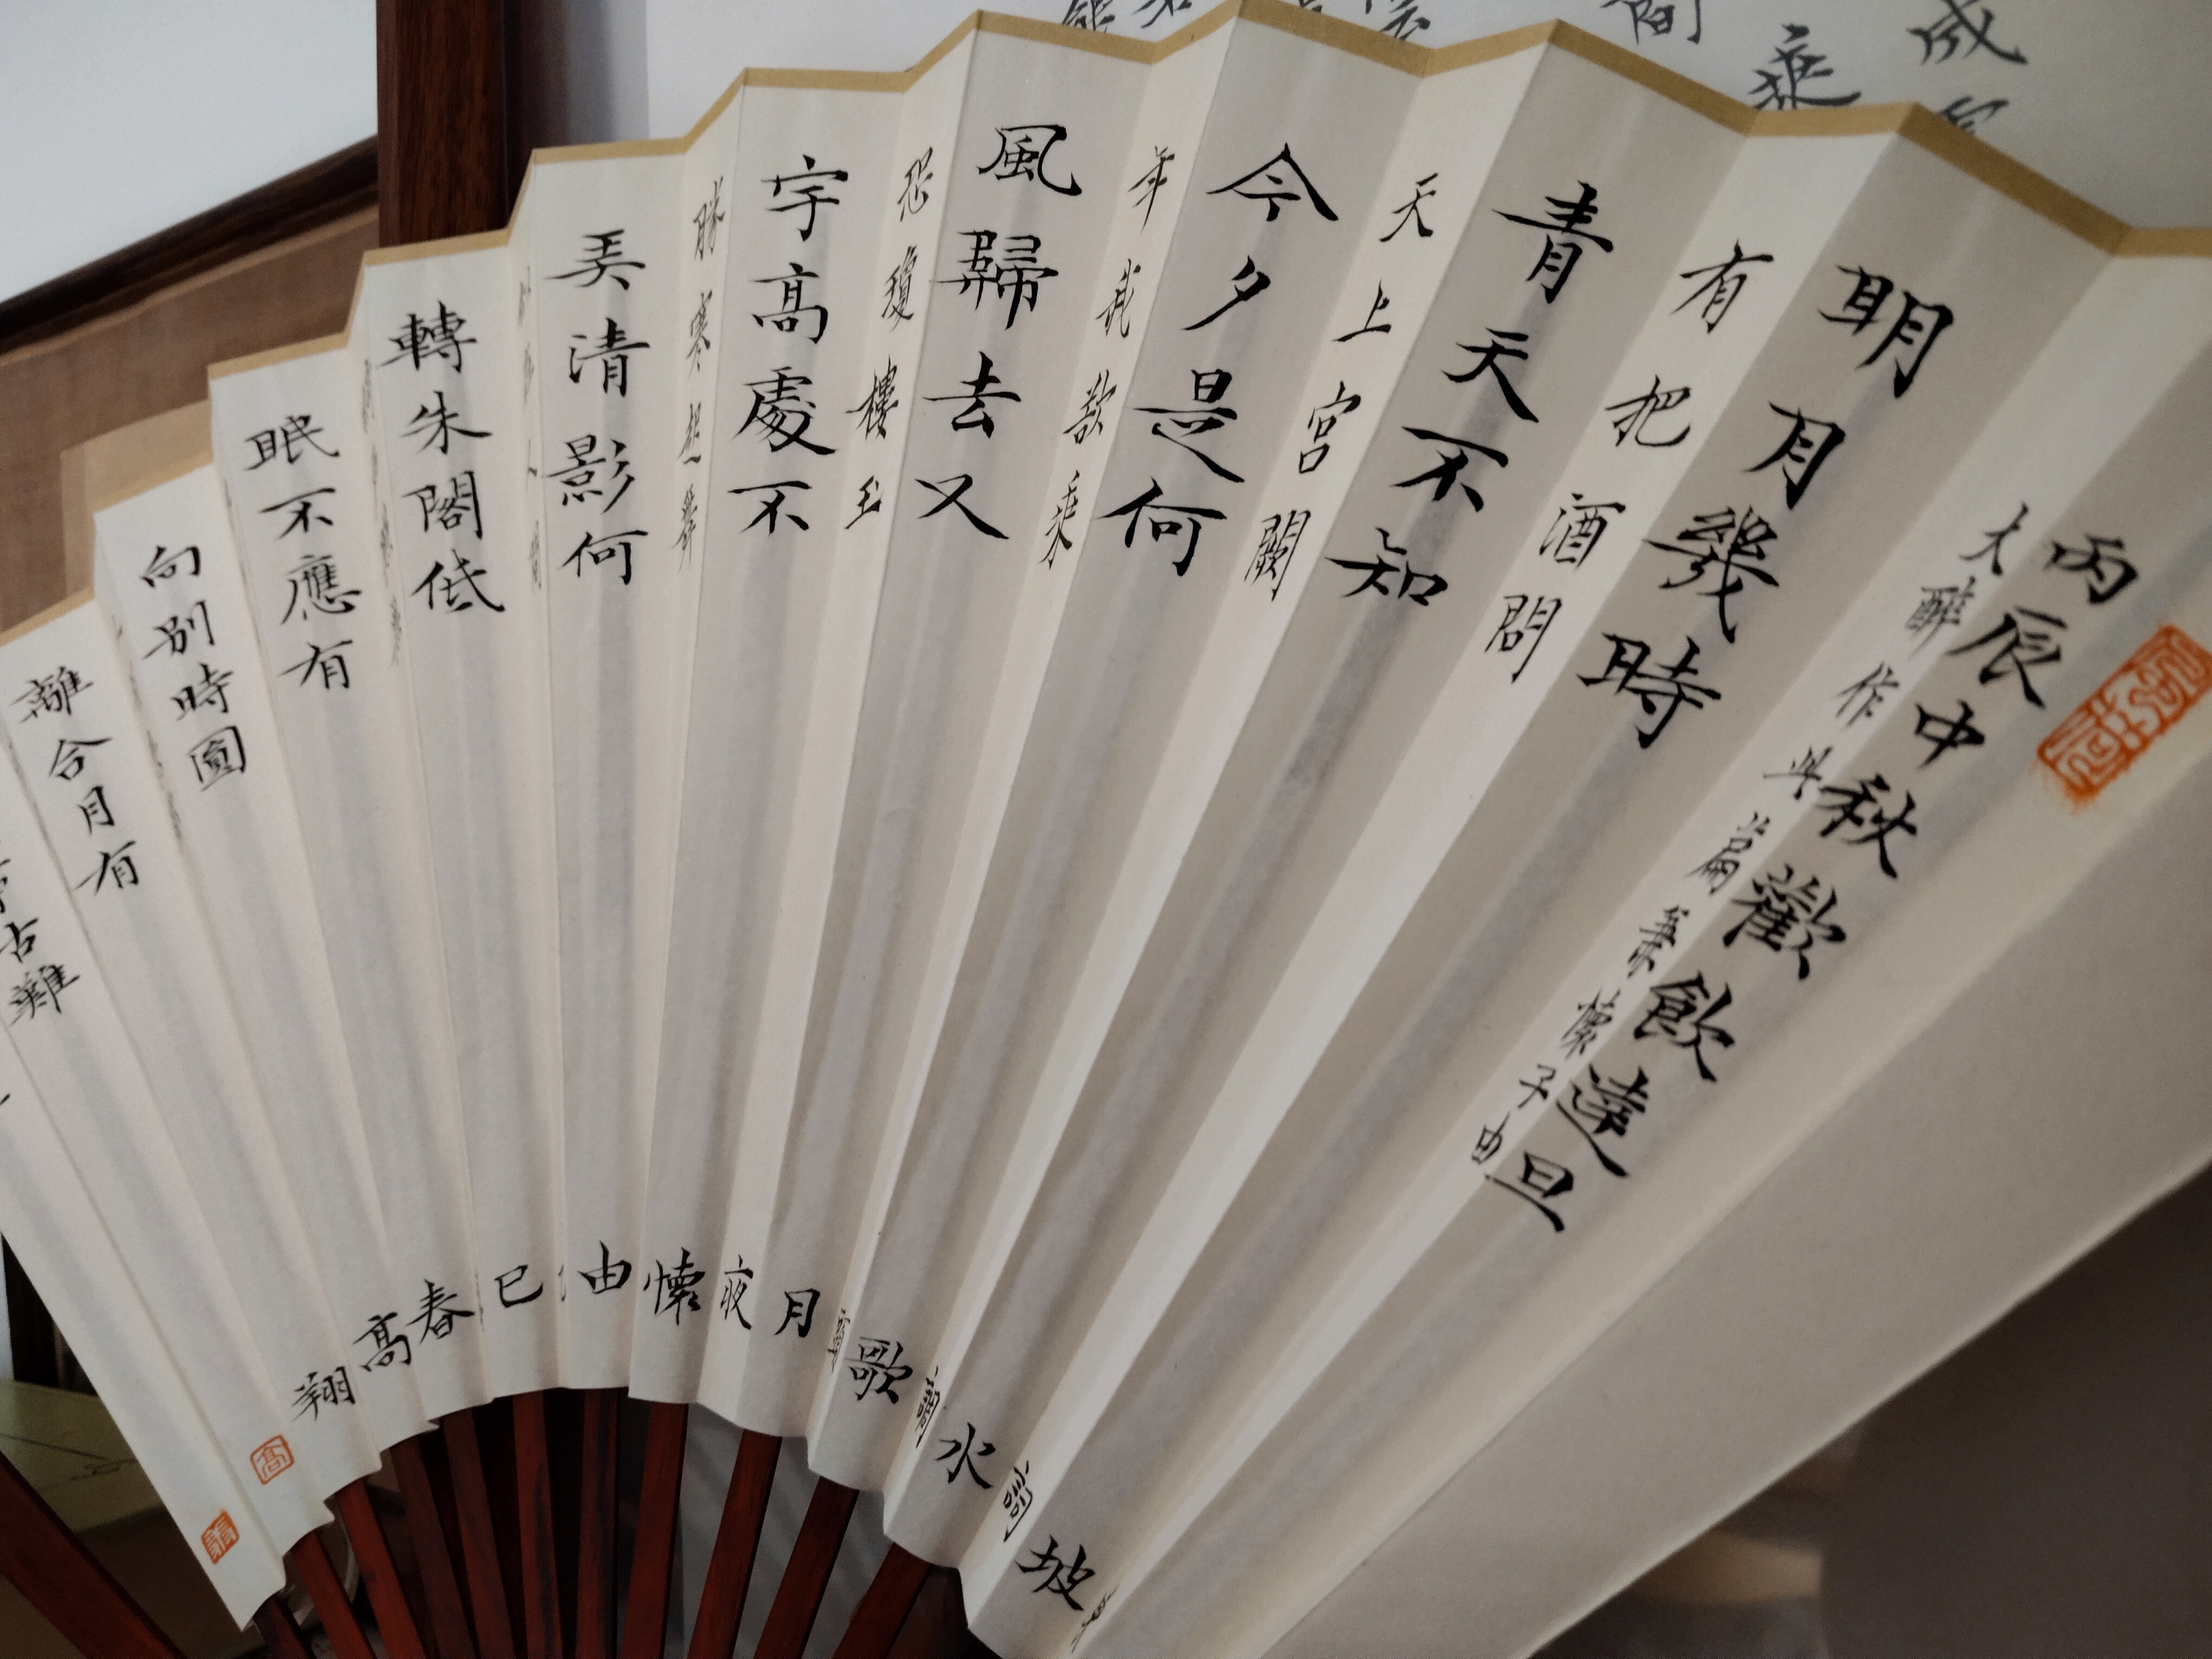 丙辰中秋歡飲達旦
大醉作此篇兼懷子由
明月幾時
有把酒問
青天不知
天上宮闕
今夕是何
年我欲乘
風歸去又
恐瓊樓玉
宇高處不
勝寒起舞
弄清影何
轉朱閣低
眠不應有
向別時圓
離合月有
古難
坡
詞
水
調
歌
月
夜
懷
由
已
春
高
翔
高